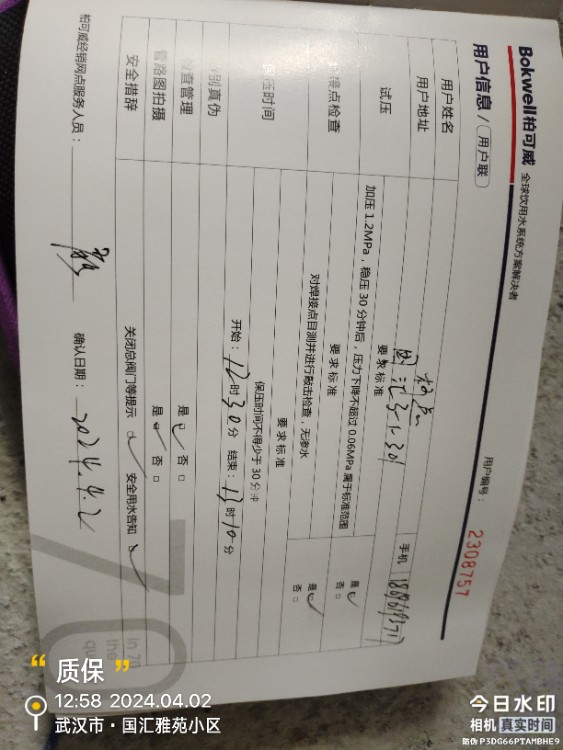 Bokwell柏可威 全球饮用水系统方案解决者
用户信息 / 用户联
用户编号： 2308757
用户姓名
手机
用户地址 国汇3-1-301
试压
要求标准
加压 1.2MPa，稳压 30 分钟后，压力下降不超过 0.06MPa 属于标准范围
是 否
接点检查
要求标准
对焊接点目测并进行敲击检查，无渗水
是 否
保压时间
要求标准
保压时间不得少于 30 分钟
开始：12时30分 结束：13时10分
别真伪
查管理
是 否
管路图拍摄
是 否
安全措辞
关闭总阀门等提示 安全用水告知
柏可威经销网点服务人员：
确认日期： 2024.4.2
“ 质保 ”
12:58 2024.04.02
武汉市·国汇雅苑小区
今日水印
相机 真实时间
防伪 P3DG66PTAMBHE9